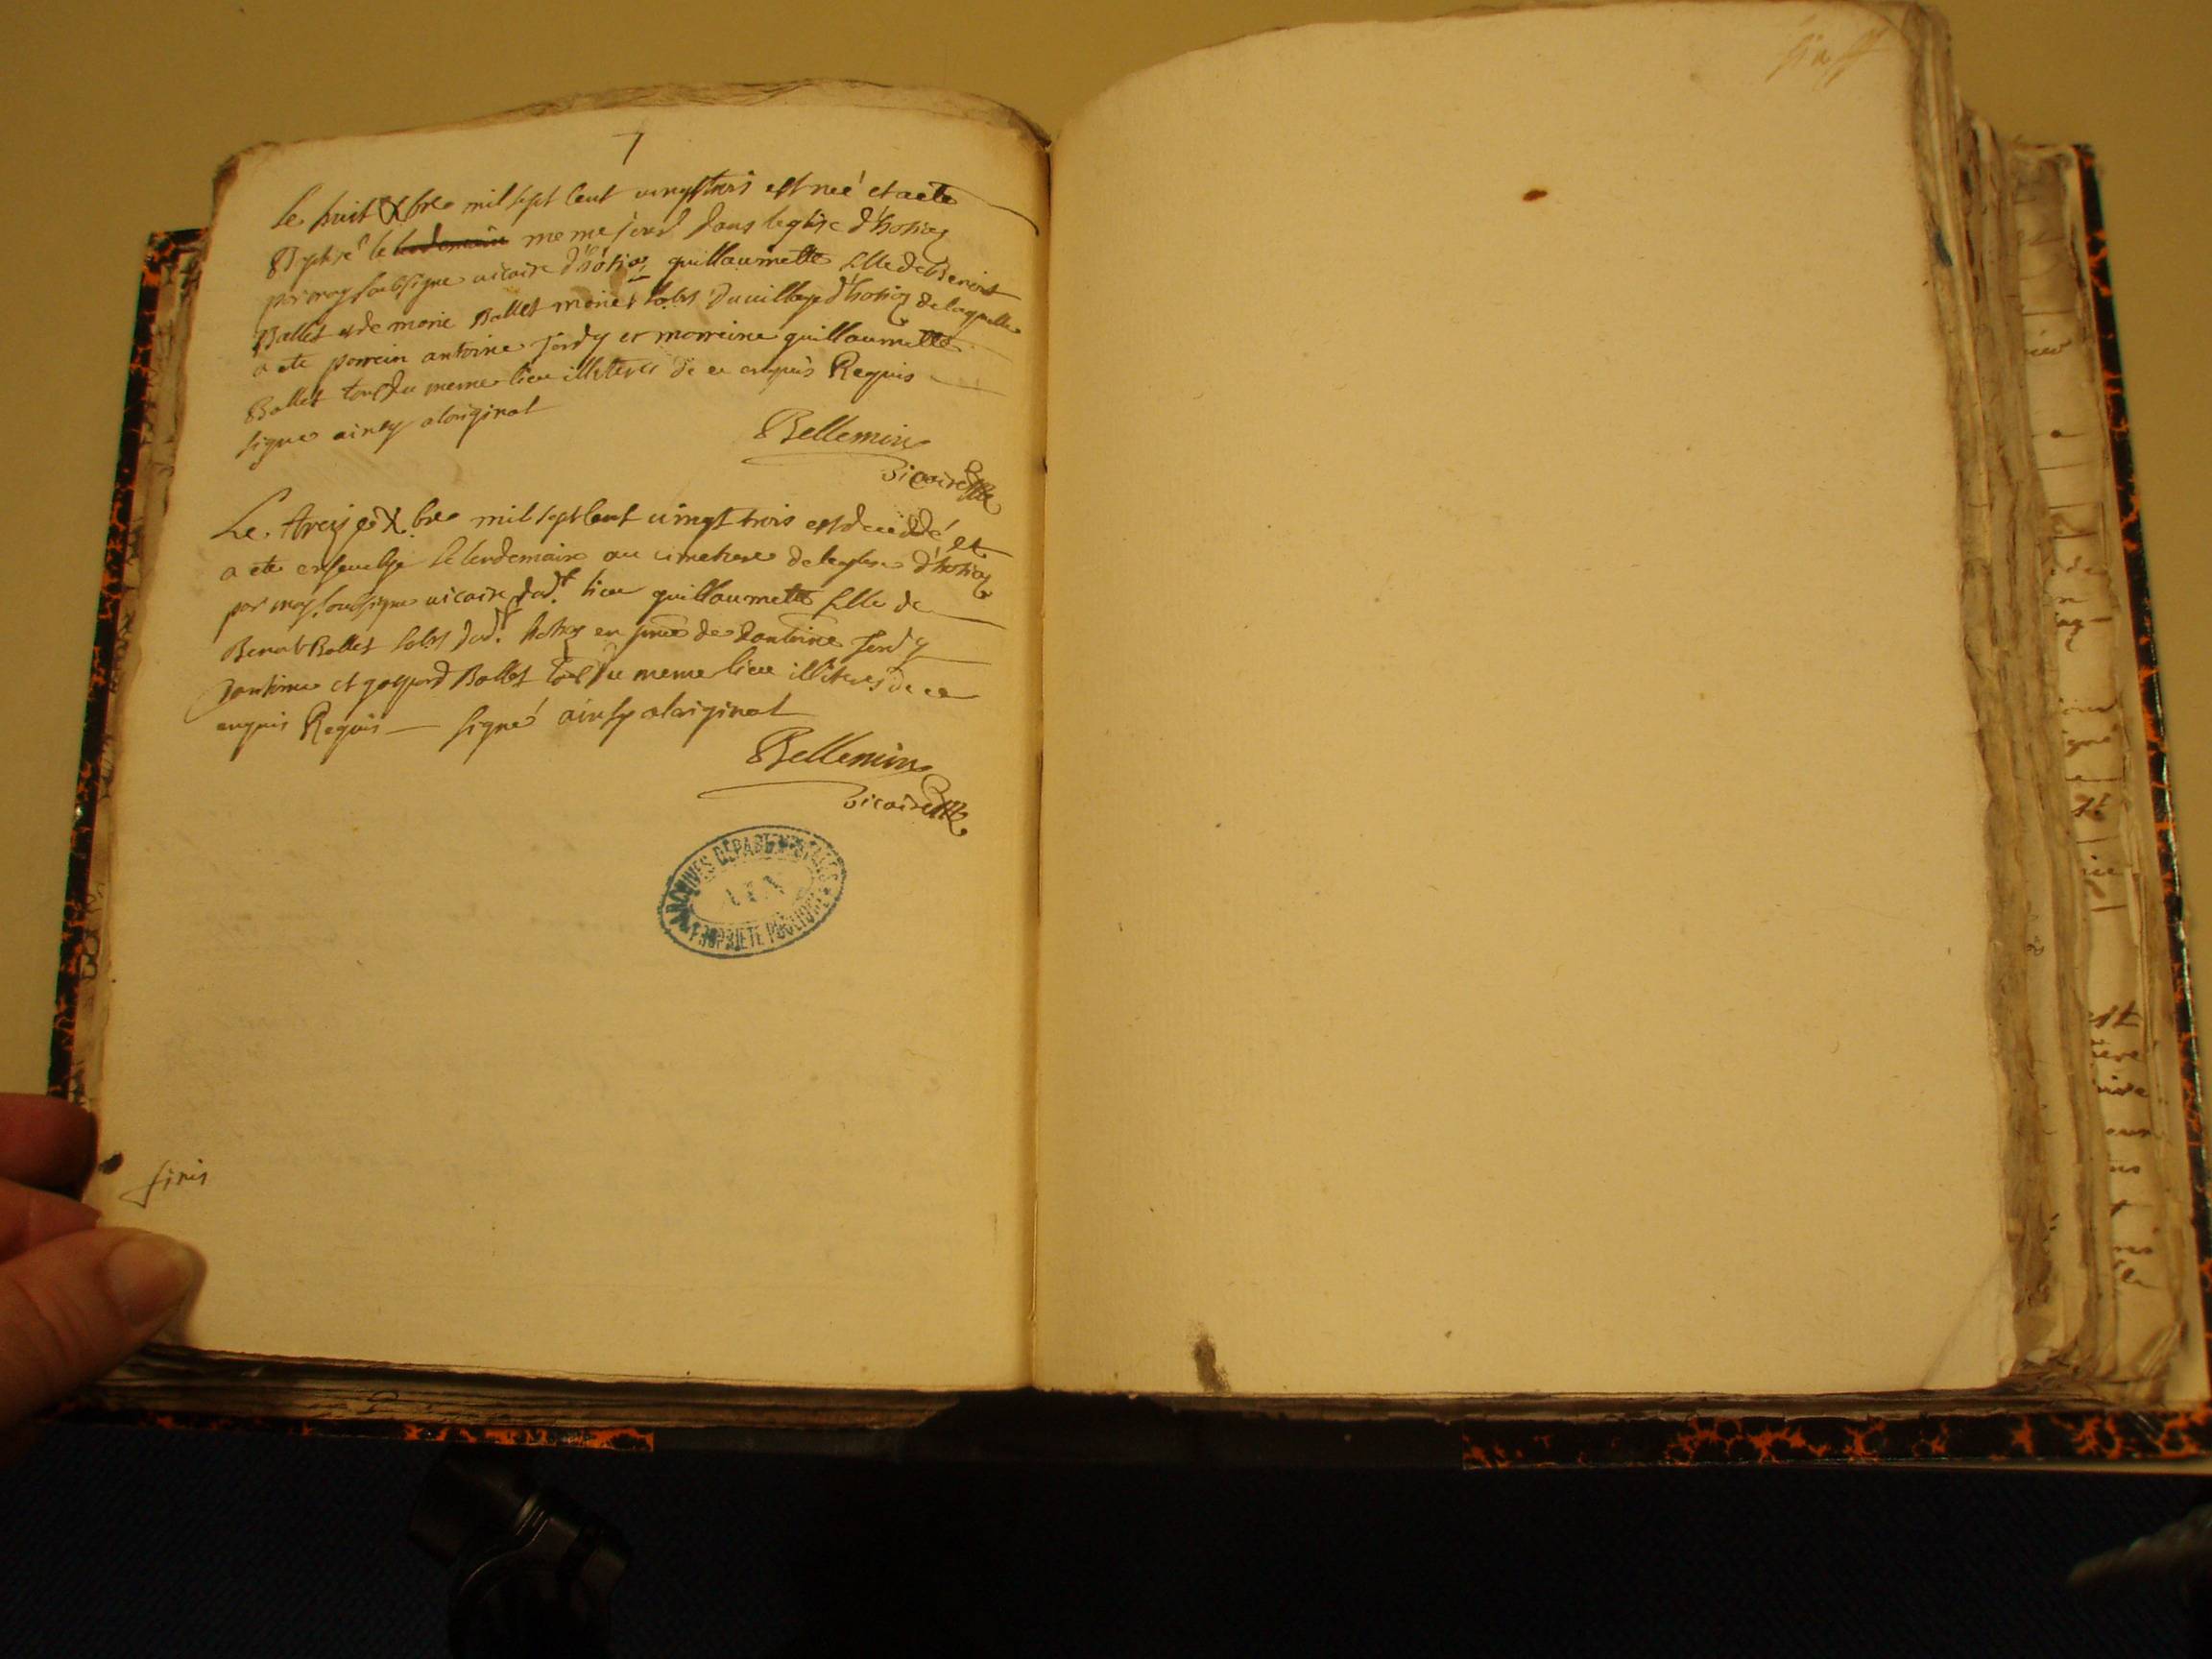 7
le huit Xbre mil sept cent vingt trois est né et a ete
Baptisé le lendemain meme jour dans leglise d'hostiaz
par moy soubsigne vicaire d'hostiaz guillaumette fille de Benoit
Ballet et de marie Ballet mariés labrs du village d'hostiaz de laquelle
a ete parrein antoine Jordy et marreine guillaumette
Ballet tous du meme lieu illiteres de ce enquis Requis
signe ainsy aloriginal
Bellemin
vicaire
Le treize Xbre mil sept cent vingt trois est decedé et
a ete ensevelye le lendemain au cimetiere de leglise d'hostiaz
par moy soussigne vicaire dudt lieu guillaumette fille de
Benoit Ballet labrs dudt hostiaz en pnce de dantoine Jordy
dantoine et gaspard Ballet tous du meme lieu illiteres de ce
enquis Requis — signé ainsy aloriginal
Bellemin
vicaire
ARCHIVES DEPARTEMENTALES
AIN
PROPRIETE PUBLIQUE
finis